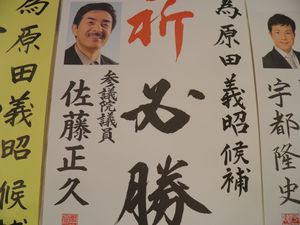 為原田義昭候補
祈必勝
参議院議員
佐藤正久
為原田義昭候補
宇都隆史